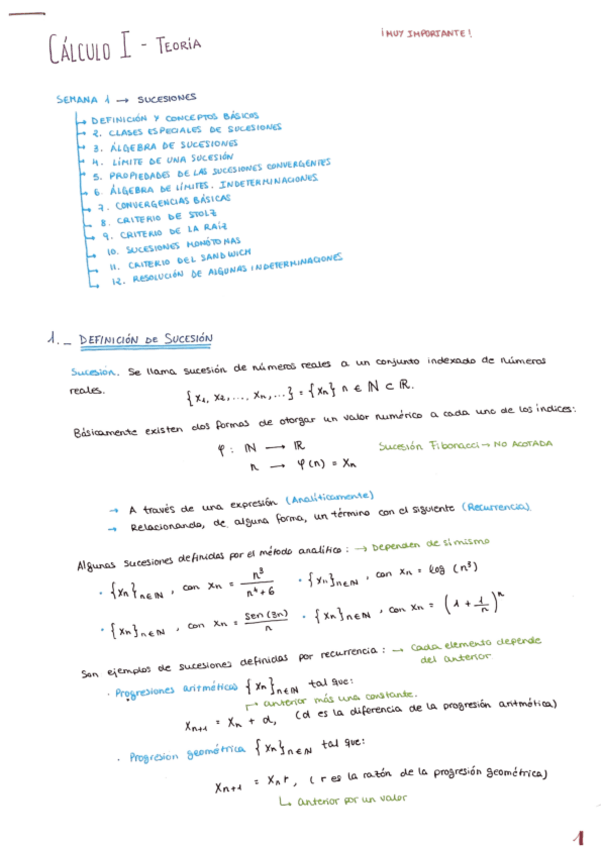 CÁLCULO I - TEORÍA
¡MUY IMPORTANTE!
SEMANA 1 → SUCESIONES
DEFINICIÓN Y CONCEPTOS BÁSICOS
2. CLASES ESPECIALES DE SUCESIONES
3. ÁLGEBRA DE SUCESIONES
4. LÍMITE DE UNA SUCESIÓN
5. PROPIEDADES DE LAS SUCESIONES CONVERGENTES
6. ÁLGEBRA DE LÍMITES. INDETERMINACIONES.
7. CONVERGENCIAS BÁSICAS
8. CRITERIO DE STOLZ
9. CRITERIO DE LA RAÍZ
10. SUCESIONES MONÓTONAS
11. CRITERIO DEL SANDWICH
12. RESOLUCIÓN DE ALGUNAS INDETERMINACIONES
1._ DEFINICIÓN DE SUCESIÓN
Sucesión. Se llama sucesión de números reales a un conjunto indexado de números
reales.
{x₁, x₂, ..., xₙ, ...} = {xₙ} n ∈ ℕ ⊂ ℝ.
Básicamente existen dos formas de otorgar un valor numérico a cada uno de los índices:
φ : ℕ → ℝ
Sucesión Fibonacci → NO ACOTADA
n → φ(n) = xₙ
→ A través de una expresión (Analíticamente)
→ Relacionando, de alguna forma, un término con el siguiente (Recurrencia)
Algunas sucesiones definidas por el método analítico: → Dependen de si mismo
· {xₙ}ₙ∈ℕ, con xₙ = n³/(n⁴+6) · {xₙ}ₙ∈ℕ, con xₙ = log (n³)
· {xₙ}ₙ∈ℕ, con xₙ = sen(3n)/n · {xₙ}ₙ∈ℕ, con xₙ = (1 + 1/n)ⁿ
Son ejemplos de sucesiones definidas por recurrencia: → Cada elemento depende
del anterior
· Progresiones aritméticas {xₙ}ₙ∈ℕ tal que:
→ anterior más una constante.
xₙ₊₁ = xₙ + d, (d es la diferencia de la progresión aritmética)
· Progresion geométrica {xₙ}ₙ∈ℕ tal que:
xₙ₊₁ = xₙr, (r es la razón de la progresión geométrica)
↳ anterior por un valor
1